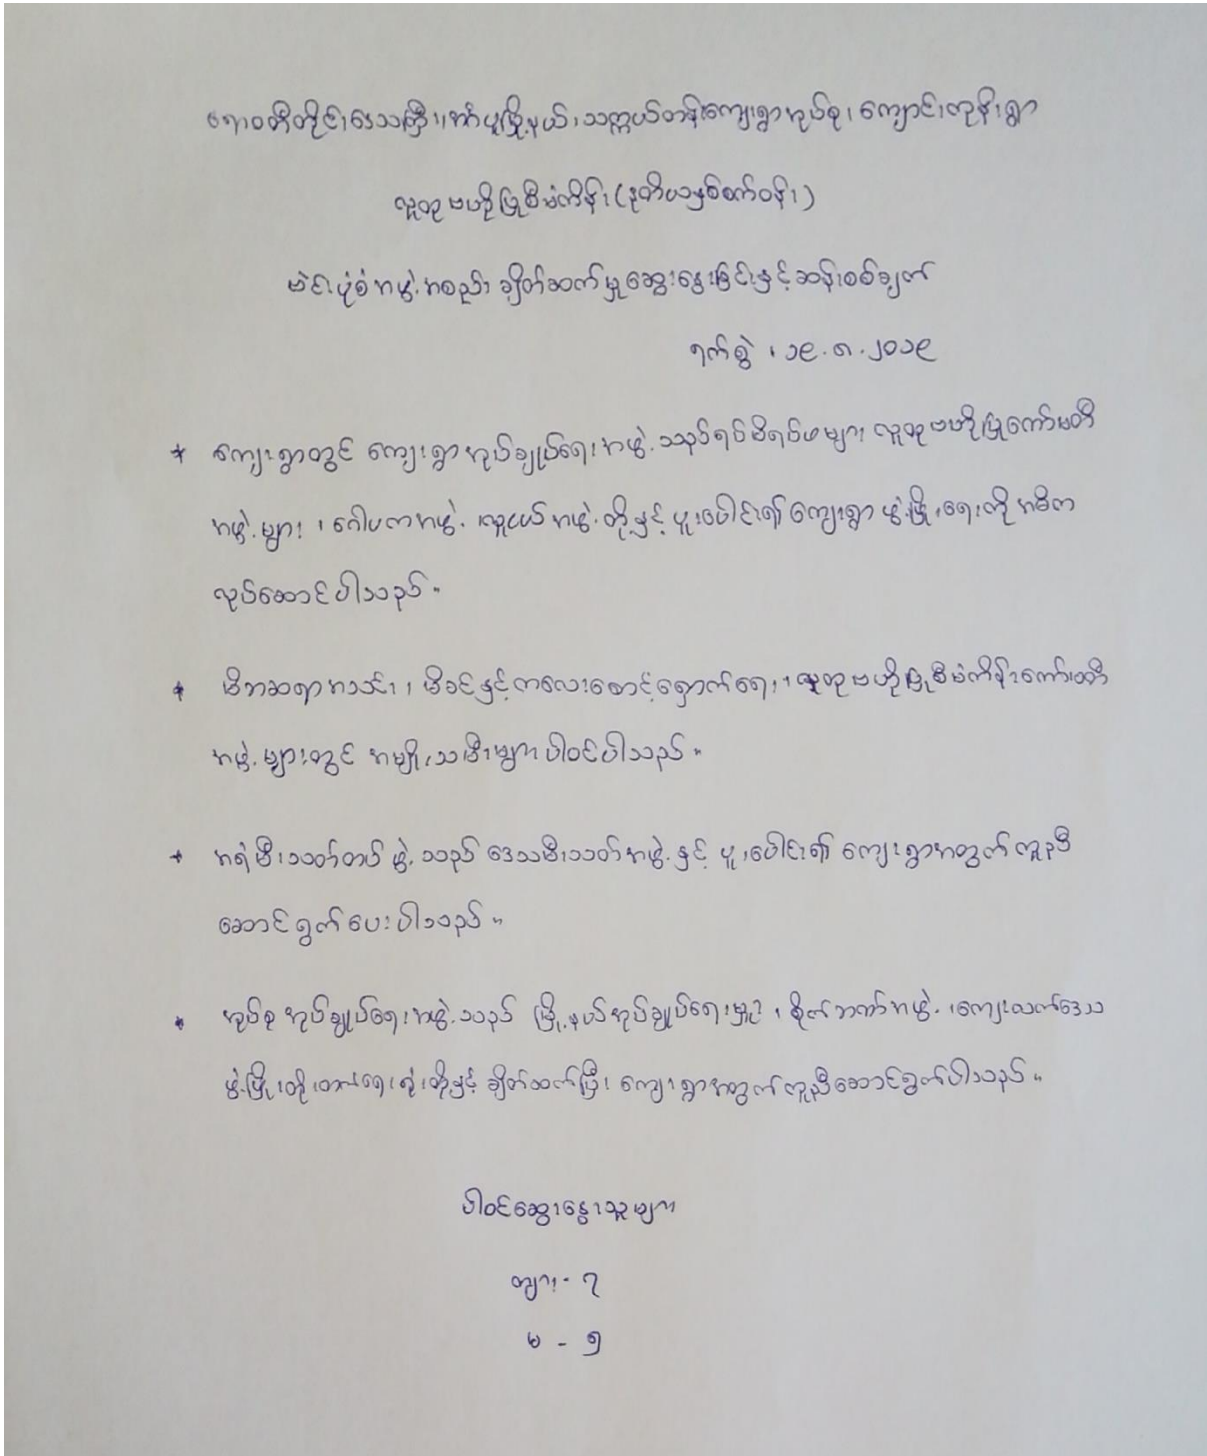 ဧရာဝတီတိုင်းဒေသကြီး၊ အင်္ဂပူမြို့နယ်၊ သက္ကယ်တန်းကျေးရွာအုပ်စု၊ ကျောင်းကုန်းရွာ
လူထုဗဟိုပြုစီမံကိန်း (ဒုတိယနှစ်စက်ဝန်း)
ဗင်းပုံစံအဖွဲ့အစည်း ချိတ်ဆက်မှုဆွေးနွေးခြင်းနှင့်ဆန်းစစ်ချက်
ရက်စွဲ ၊ ၁၉.၈.၂၀၁၉
* ကျေးရွာတွင် ကျေးရွာအုပ်ချုပ်ရေးအဖွဲ့သည် ရပ်မိရပ်ဖများ လူထုဗဟိုပြုကော်မတီ
အဖွဲ့များ ၊ ဂေါပကအဖွဲ့ ၊ လူငယ်အဖွဲ့တို့နှင့် ပူးပေါင်း၍ ကျေးရွာဖွံ့ဖြိုးရေးကို အဓိက
လုပ်ဆောင်ပါသည်။
* မိဘဆရာအသင်း ၊ မိခင်နှင့်ကလေးစောင့်ရှောက်ရေး ၊ လူထုဗဟိုပြုစီမံကိန်းကော်မတီ
အဖွဲ့များတွင် အမျိုးသမီးများ ပါဝင်ပါသည်။
* အရံမီးသတ်တပ်ဖွဲ့သည် ဒေသမီးသတ်အဖွဲ့နှင့် ပူးပေါင်း၍ ကျေးရွာအတွက် ကူညီ
ဆောင်ရွက်ပေးပါသည်။
* အုပ်စုအုပ်ချုပ်ရေးအဖွဲ့သည် မြို့နယ်အုပ်ချုပ်ရေးမှူး ၊ စိုက်ဘဏ်အဖွဲ့ ၊ ကျေးလက်ဒေသ
ဖွံ့ဖြိုးတိုးတက်ရေးရုံးတို့နှင့် ချိတ်ဆက်ပြီး ကျေးရွာအတွက်ကူညီဆောင်ရွက်ပါသည်။
ပါဝင်ဆွေးနွေးသူများ
ကျား - ၇
မ - ၅